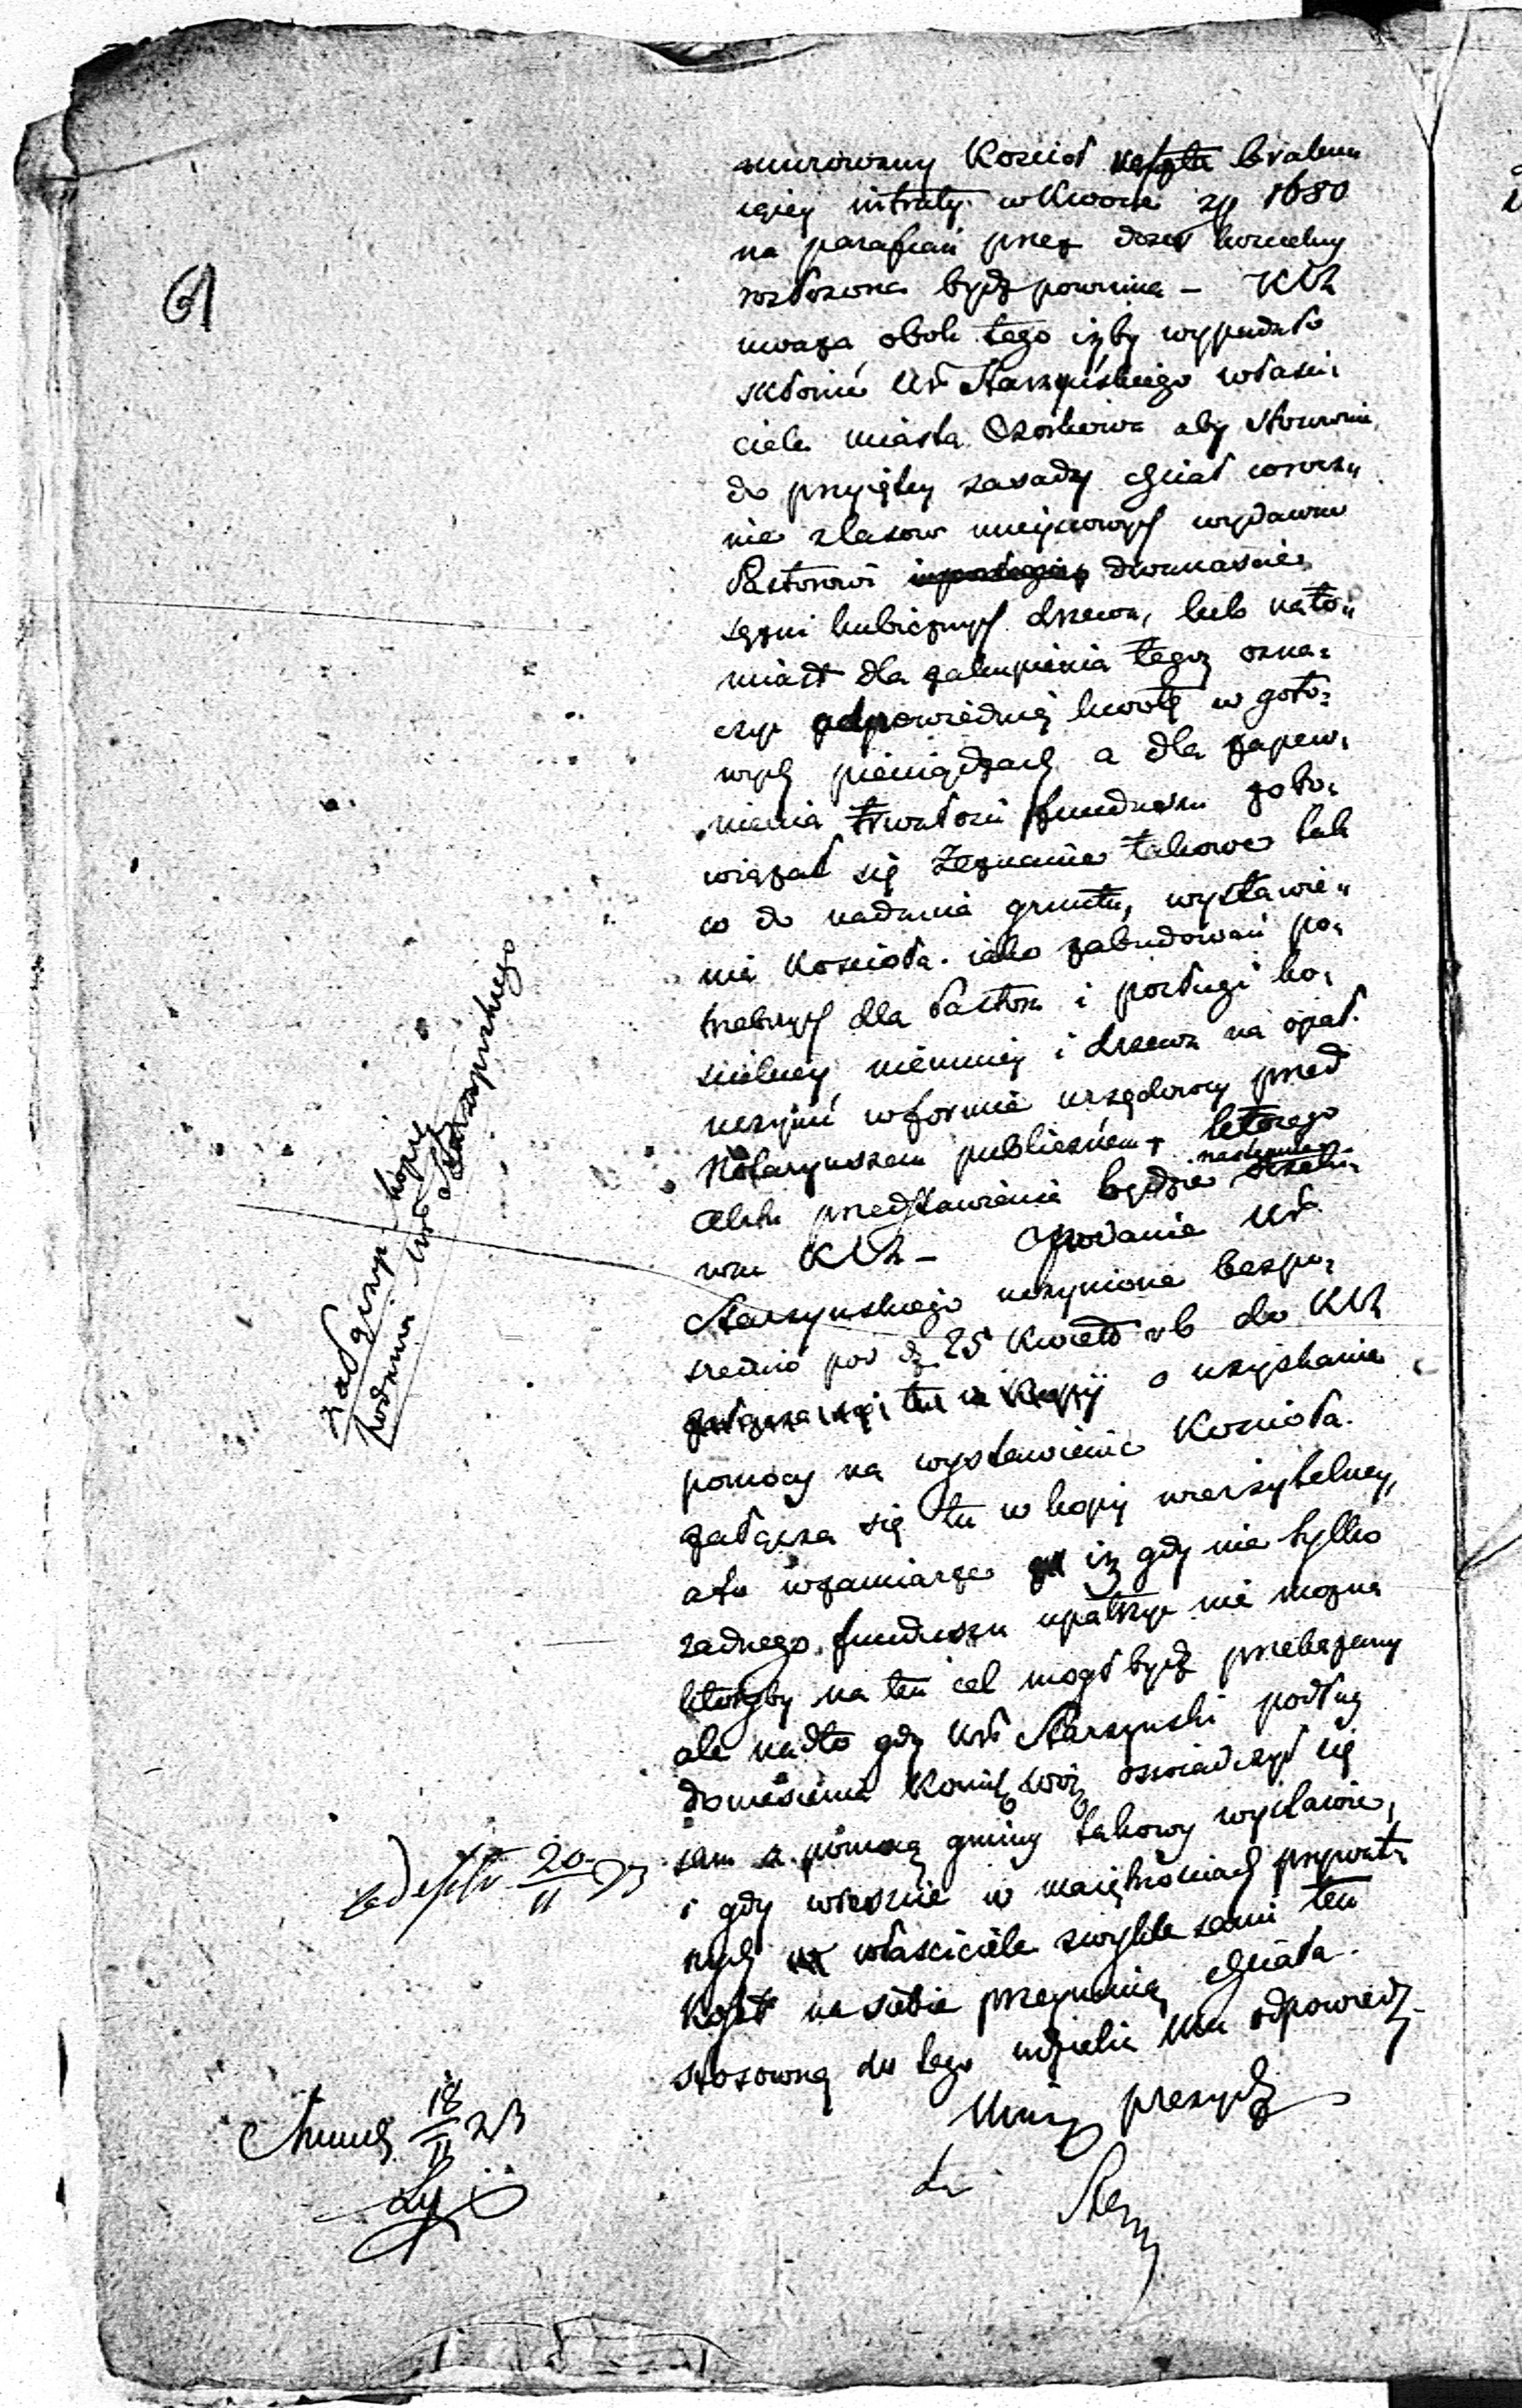 61
murowany Koscioł brakuu
iącey intraty w kwocie zp 1680
na parafian przez dozor koscielny
rozłozona bydz powinna – KW
uwaza obok tego izby wypadało
skłonić UR Starzyńskiego własci,
ciela miasta Ozorkowa aby stosownie
do przyiętey zasady chciał corocz,,
nie z lasow mieyscowych wydawać
Pastorowi dwanascie
sązni kubicznych drzewa, lub nato,,
miast dla zakupienia tegoz ozna=
czyć odpowiednią kwotę w goto=
wych pieniądzach a dla zapew,
nienia trwałosci funduszu zobo,
wiązał się Zeznanie takowe tak
co do nadania gruntu, wystawie,,
nia Koscioła iako zabudowań po,
trzebnych dla Pastora i posługi ko,
scielney niemniey i drzewa na opał
uczynić w formie urzędowey przed
Notaryuszem publicznem, którego
aktu przedstawienia będzie
KW – Podanie UR
Starzynskiego uczynione bezpo,
srednio pod d. 25 Kwiet rb do KW
o uzyskanie
pomocy na wystawienie Koscioła
załącza się tu w kopij wierzytelney,
a to w zamiarze iz gdy nie tylko
zadnego funduszu upatrzyć nie mozna
któryby na ten cel mogł bydz przekazany
ale nadto gdy UR Starzynski podług
doniesienia Kommissyi Wwó oswiadczył się
sam z pomocą gminy takowy wystawić,
i gdy wreszcie w maiętnosciach prywat,
nych własciciele zwykle sami ten
koszt na siebie przeymuią, chciała
stosowną do tego udzielić Mu odpowiedz
Minis prezyd
załączyć kopię
Podania UR Starzynskiego
20/11 23
18/11 23